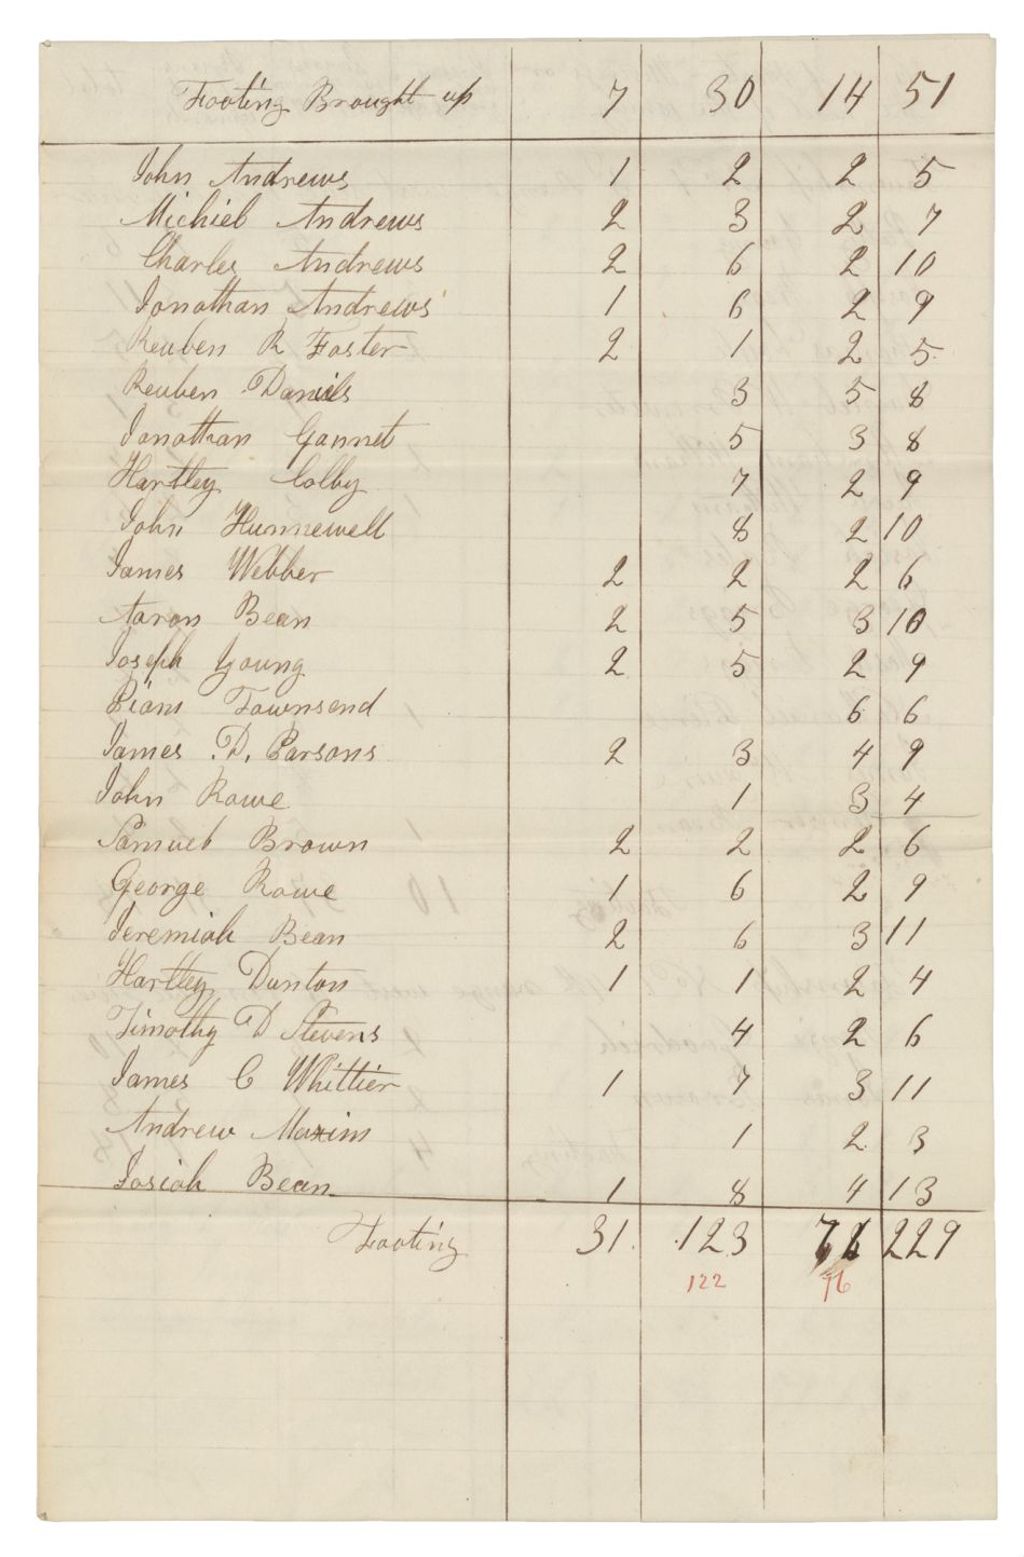 Footing Brought up 7 30 14 51
John Andrews 1 2 2 5
Michiel Andrews 2 3 2 7
Charles Andrews 2 6 2 10
Jonathan Andrews 1 6 2 9
Reuben R Foster 2 1 2 5
Reuben Daniels 3 5 8
Jonathan Gannet 5 3 8
Hartley Colby 7 2 9
John Hunnewell 8 2 10
James Webber 2 2 2 6
Aaron Bean 2 5 3 10
Joseph Young 2 5 2 9
Townsend 6 6
James D. Parsons 2 3 4 9
John Rowe 1 3 4
Samuel Brown 2 2 2 6
George Rowe 1 6 2 9
Jeremiah Bean 2 6 3 11
Hartley Dunton 1 1 2 4
Timothy D Stevens 4 2 6
James C Whittier 1 7 3 11
Andrew Maxim 1 2 3
Josiah Bean 1 8 4 13
Footing 31. 123 76 229
122 76